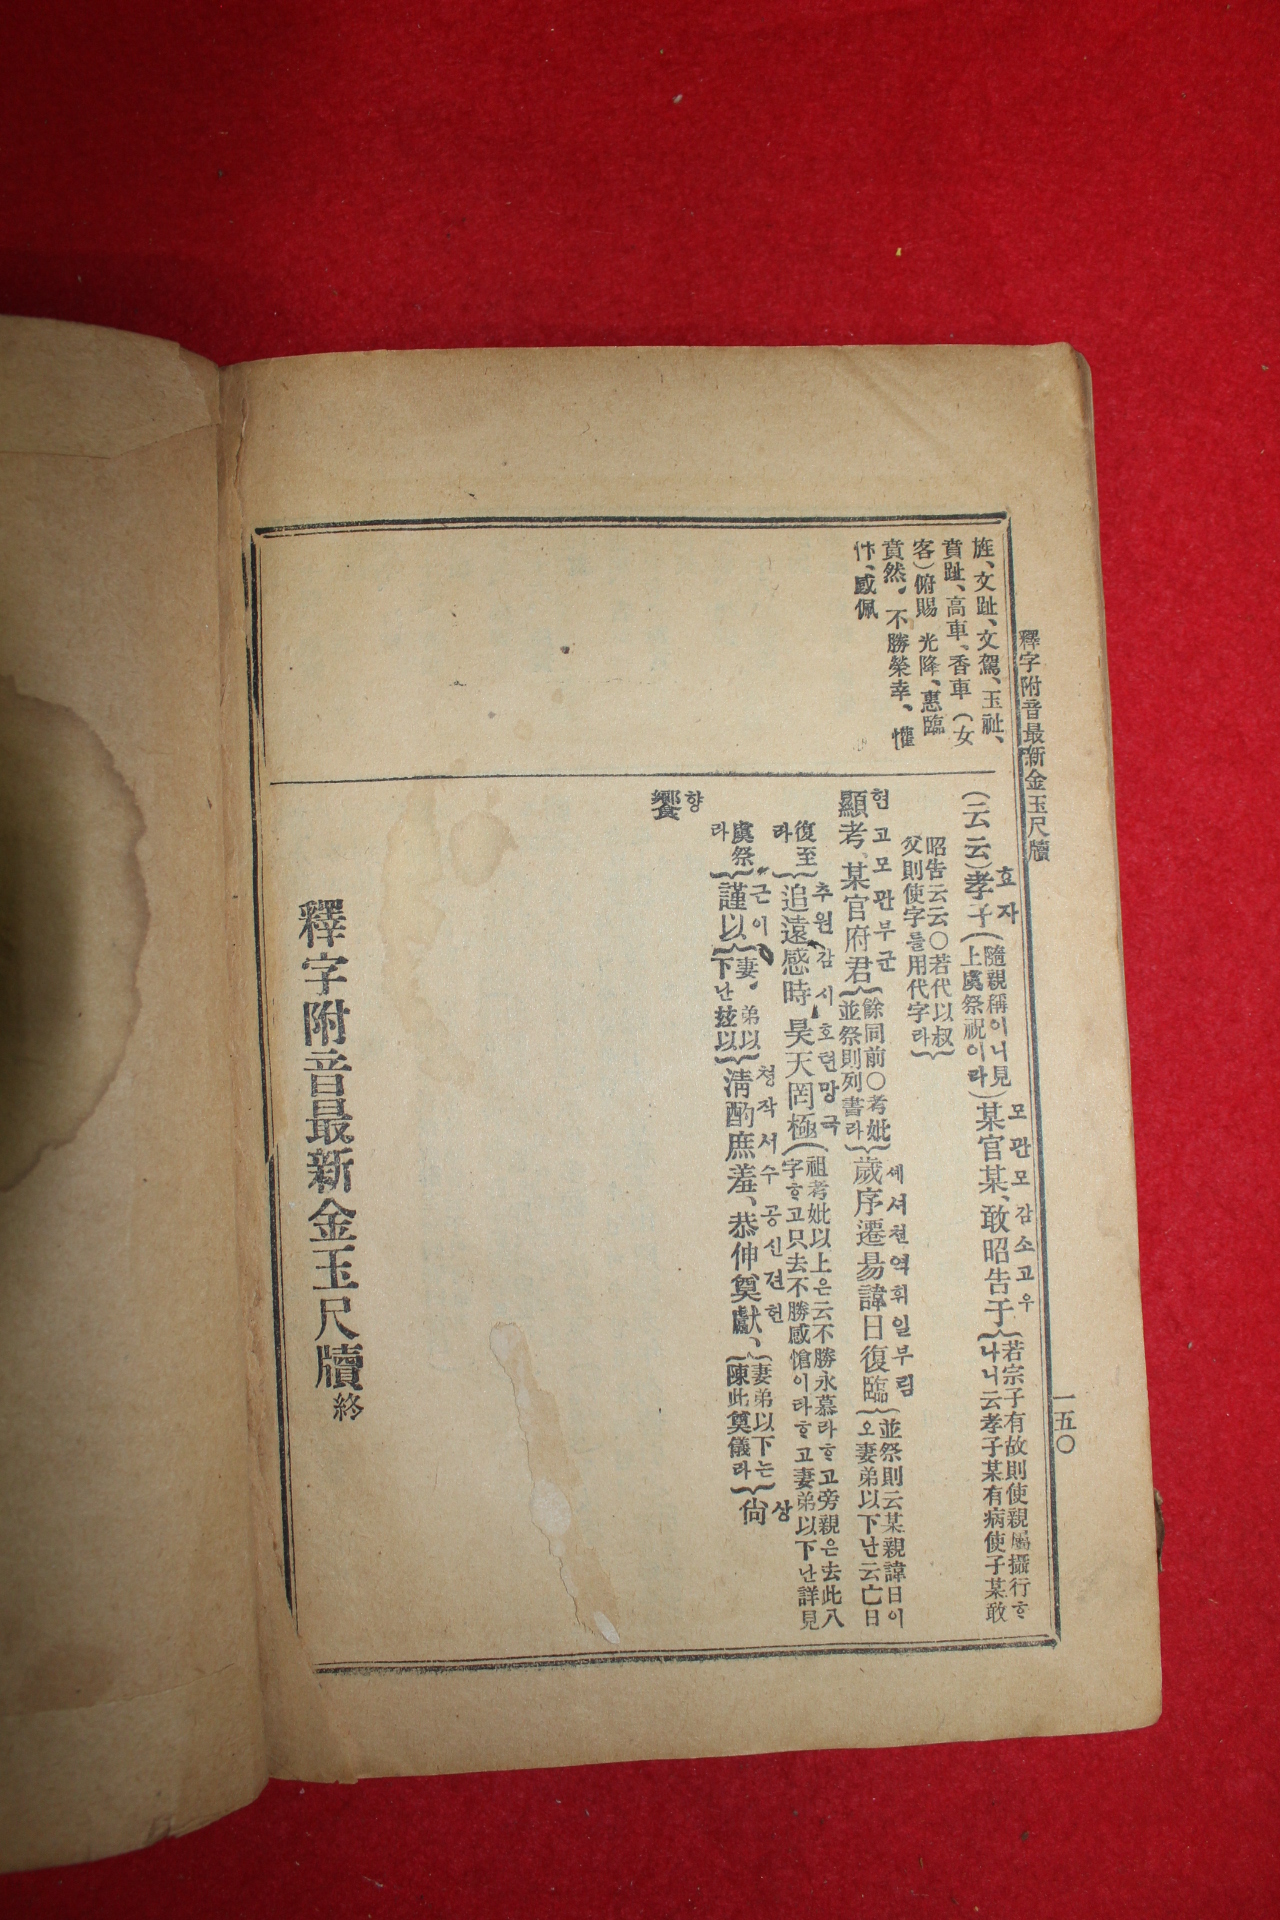 釋字附音最新金玉尺牘
一五〇
旌、文趾、文駕、玉趾、
賁趾、高車、香車（女
客）俯賜 光降、惠臨
賁然。不勝榮幸、懽
忭、感佩
（云云）孝子（隨親稱이니見上虞祭祝이라）某官某、敢昭告于（若宗子有故則使親屬攝行ᄒᆞ나니云孝子某有病使子某敢
효자 모관모감소고우
昭告云云〇若代以叔父則使字를用代字라）
현고모관부군 세셔쳔역휘일부림
顯考、某官府君（餘同前〇考妣並祭則列書라）歲序遷易諱日復臨（並祭則云某親諱日이오妻弟以下난云亡日
추원감시호텬망극
復至라）追遠感時昊天罔極（祖考妣以上은云不勝永慕라ᄒᆞ고旁親은去此八字ᄒᆞ고只去不勝感愴이라ᄒᆞ고妻弟以下난詳見
근이 청작서수공신견헌 상
虞祭라）謹以（妻。弟以下난玆以）淸酌庶羞、恭伸奠獻、（妻弟以下는陳此奠儀라）尙
향
饗
釋字附音最新金玉尺牘 終